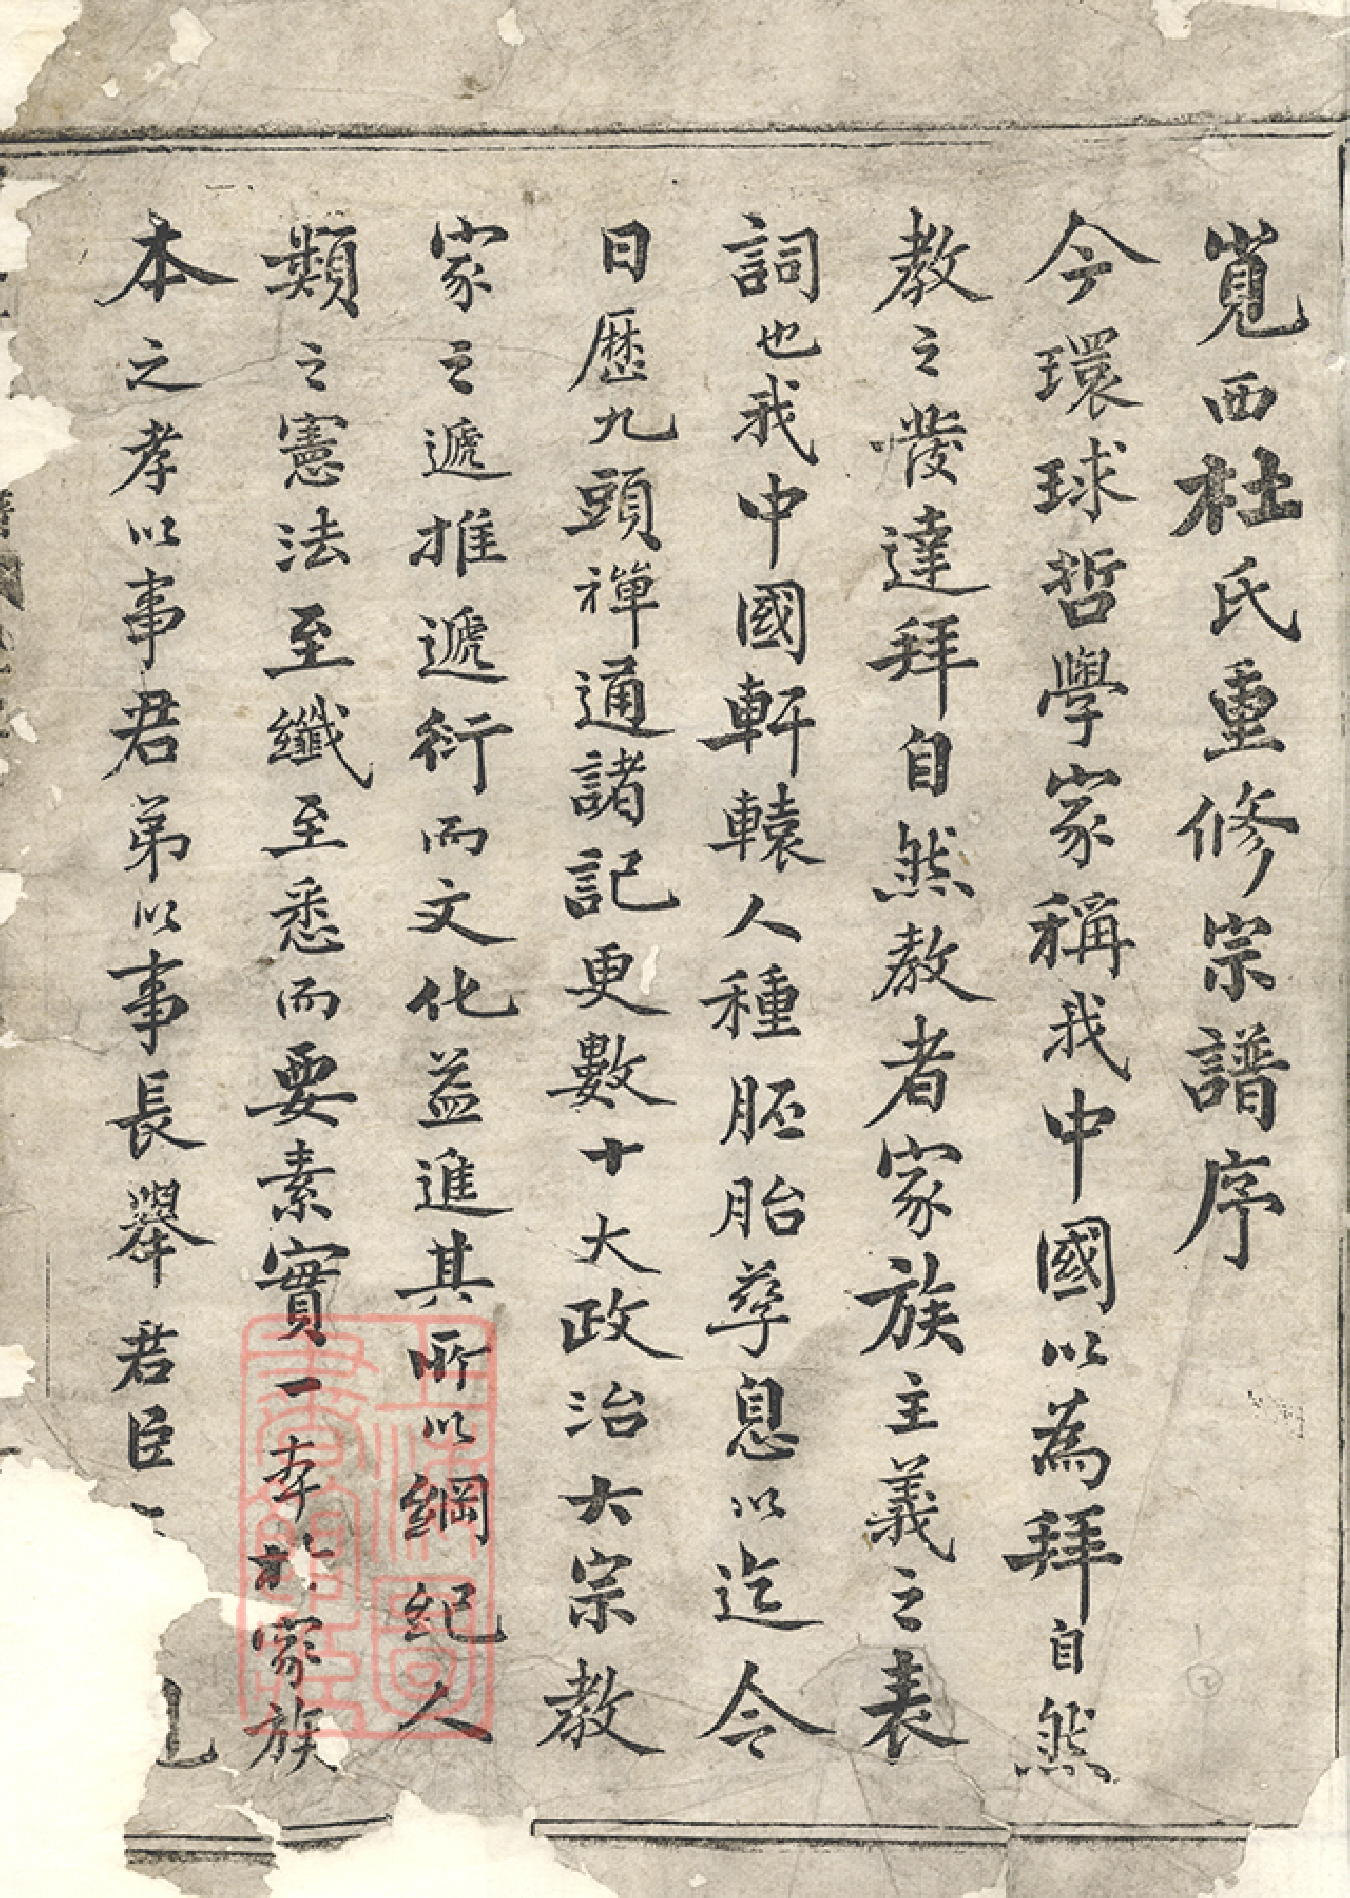 寬西杜氏重修宗譜序
今環球哲學家稱我中國以為拜自然
教之發達拜自然教者家族主義之表
詞也我中國軒轅人種胚胎孳息以迄今
日歷九頭禪通諸記更數十大政治大宗教
家之遞推遞衍而文化益進其所以綱紀人
類之憲法至纖至悉而要素實一本於家族
本之孝以事君弟以事長舉君臣